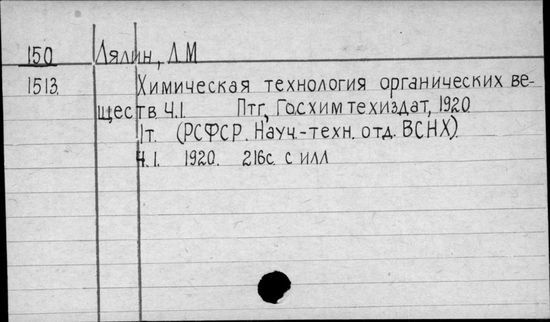 150 Лялин, Л М
1513. Химическая технология органических ве-
ществ Ч.1. Птг, Госхимтехиздат, 1920
1т. (РСФСР. Науч-техн. отд. ВСНХ).
Ч.1. 1920. 216с. с илл